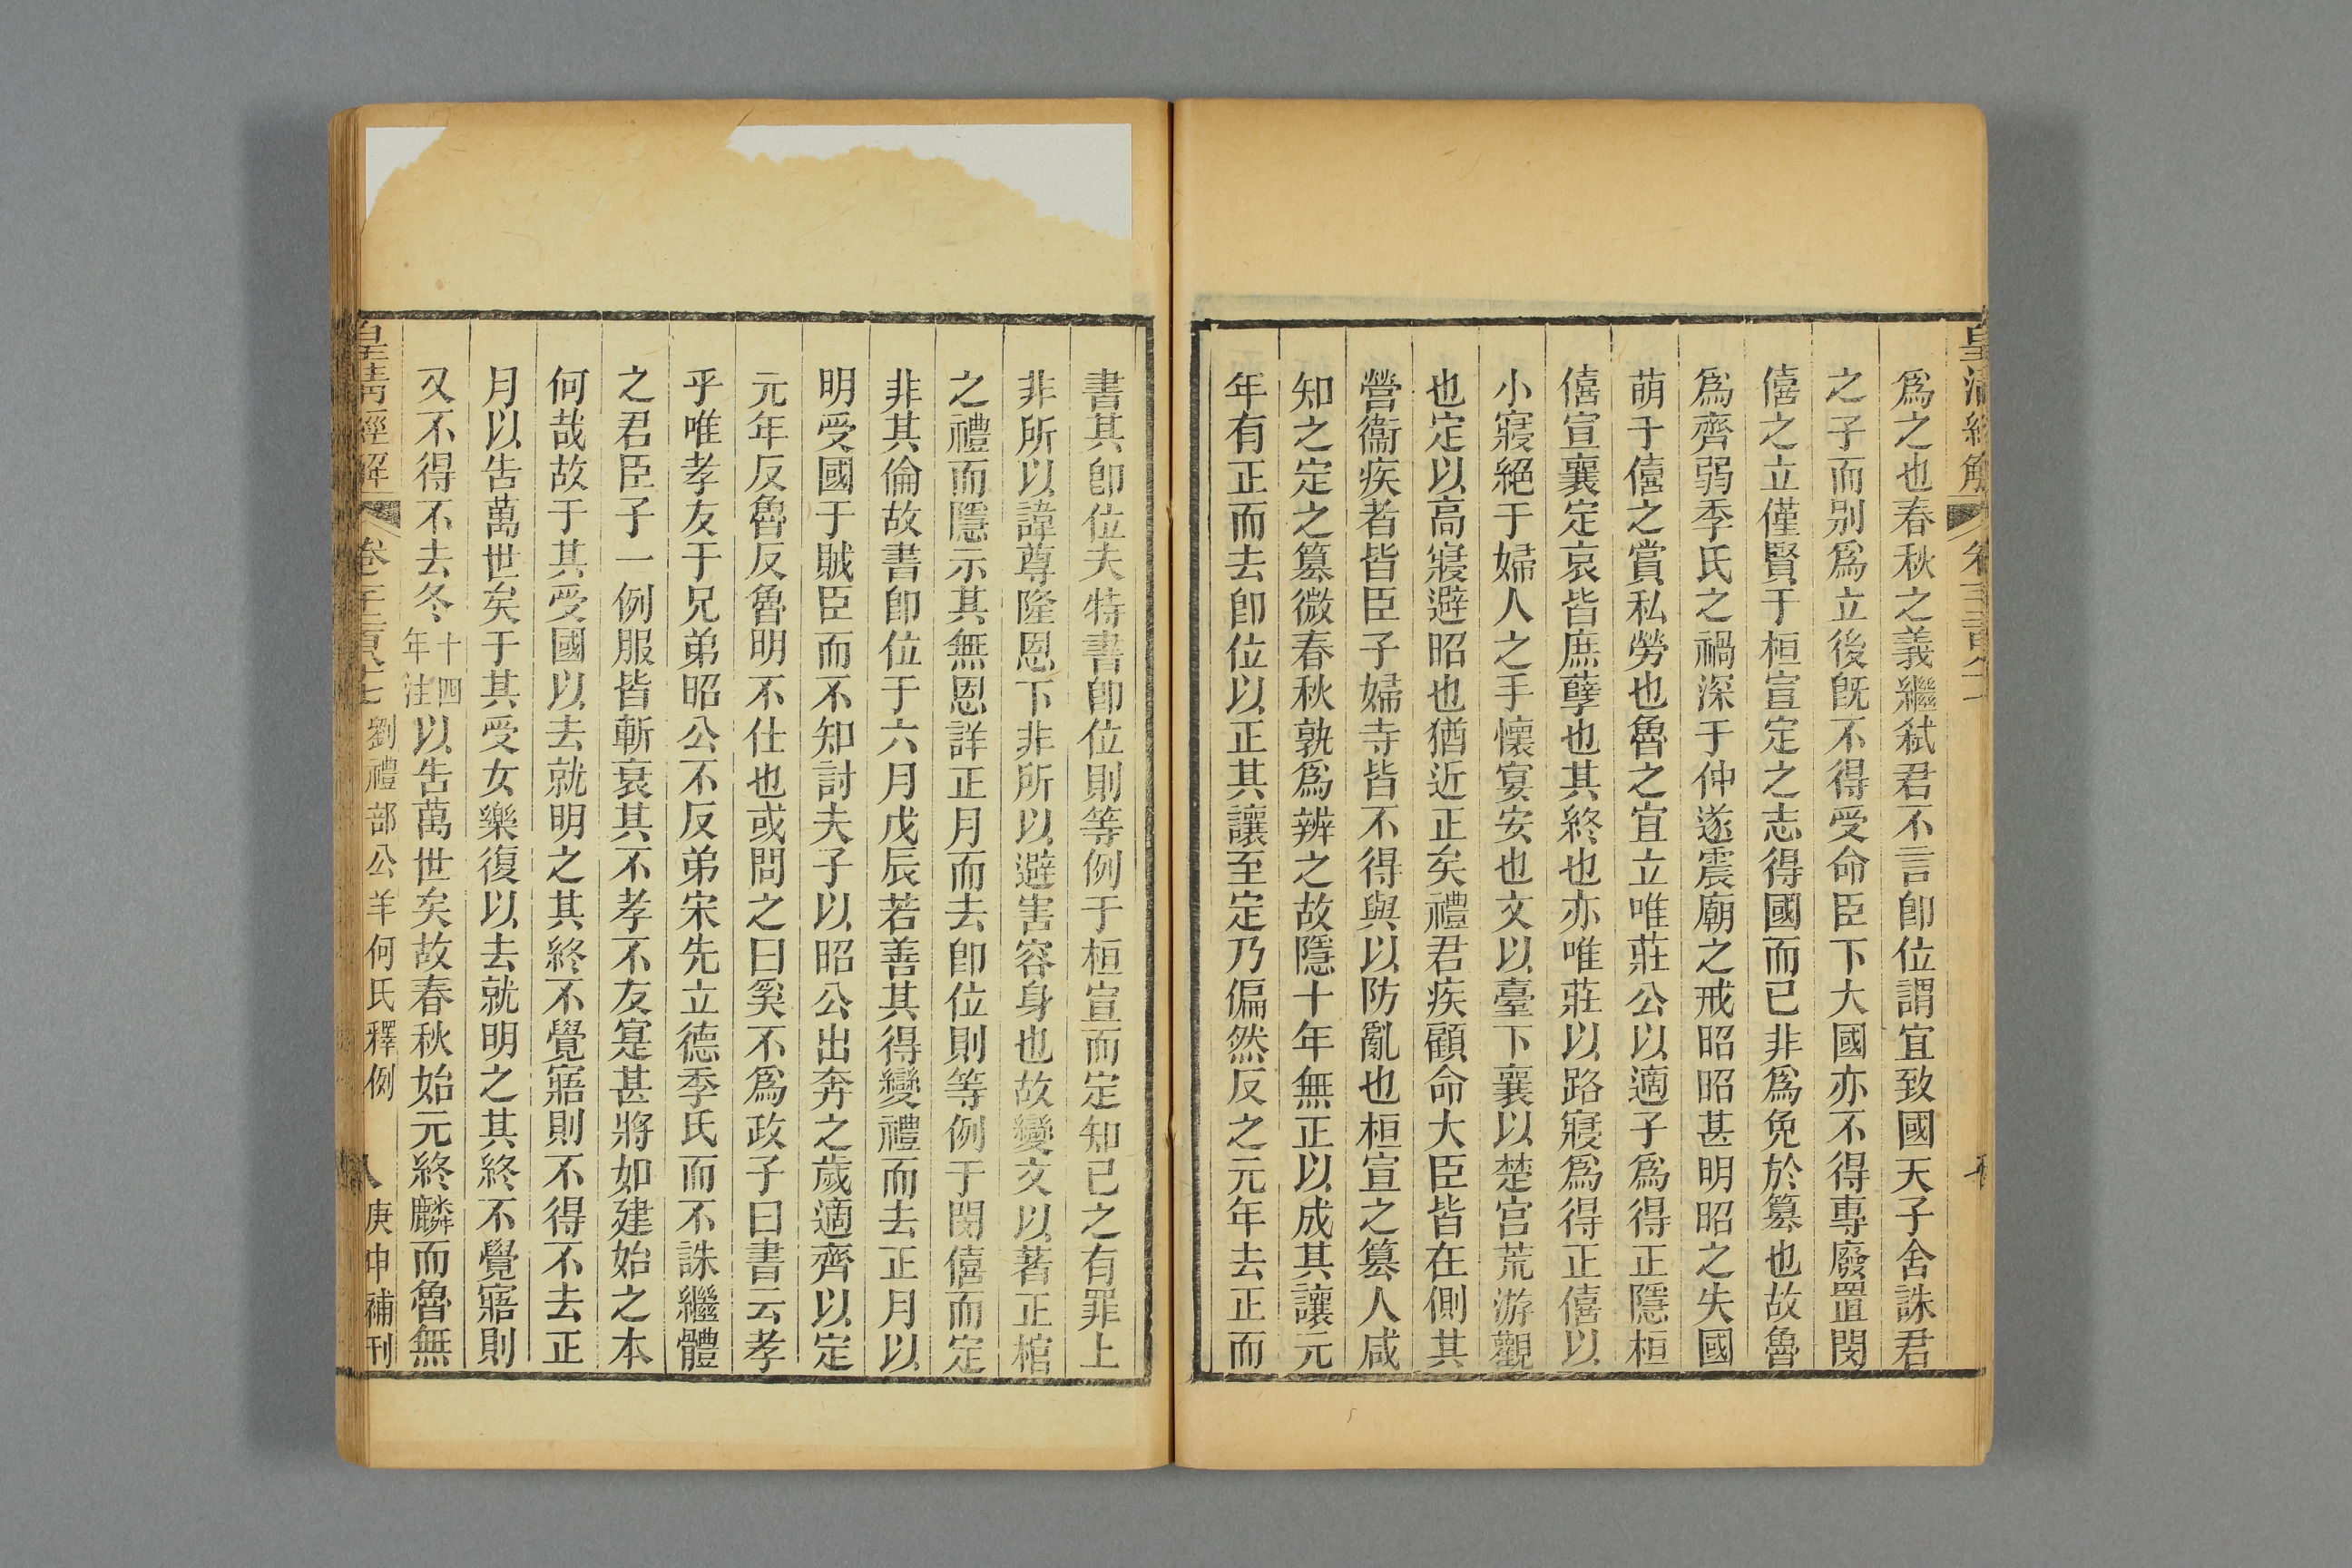 爲之也春秋之義繼弑君不言卽位謂宜致國天子舍誅君
之子而別爲立後旣不得受命臣下大國亦不得專廢置閔
僖之立僅賢于桓宣定之志得國而已非爲免於篡也故魯
爲齊弱季氏之禍深于仲遂震廟之戒昭昭甚明昭之失國
萌于僖之賞私勞也魯之宜立唯莊公以適子爲得正隱桓
僖宣襄定哀皆庶孽也其終也亦唯莊以路寢爲得正僖以
小寢絕于婦人之手懷宴安也文以臺下襄以楚宮荒游觀
也定以高寢避昭也猶近正矣禮君疾顧命大臣皆在側其
營衞疾者皆臣子婦寺皆不得與以防亂也桓宣之篡人咸
知之定之篡微春秋孰爲辨之故隱十年無正以成其讓元
年有正而去卽位以正其讓至定乃偏然反之元年去正而
書其卽位夫特書卽位則等例于桓宣而定知己之有罪上
非所以諱尊隆恩下非所以避害容身也故變文以著正棺
之禮而隱示其無恩詳正月而去卽位則等例于閔僖而定
非其倫故書卽位于六月戊辰若善其得變禮而去正月以
明受國于賊臣而不知討夫子以昭公出奔之歲適齊以定
元年反魯反魯明不仕也或問之曰奚不爲政子曰書云孝
乎唯孝友于兄弟昭公不反弟宋先立德季氏而不誅繼體
之君臣子一例服皆斬衰其不孝不友寔甚將如建始之本
何哉故于其受國以去就明之其終不覺寤則不得不去正
月以告萬世矣于其受女樂復以去就明之其終不覺寤則
又不得不去冬十四年注以告萬世矣故春秋始元終麟而魯無
皇淸經解 劉禮部公羊何氏釋例 八 庚申補刊